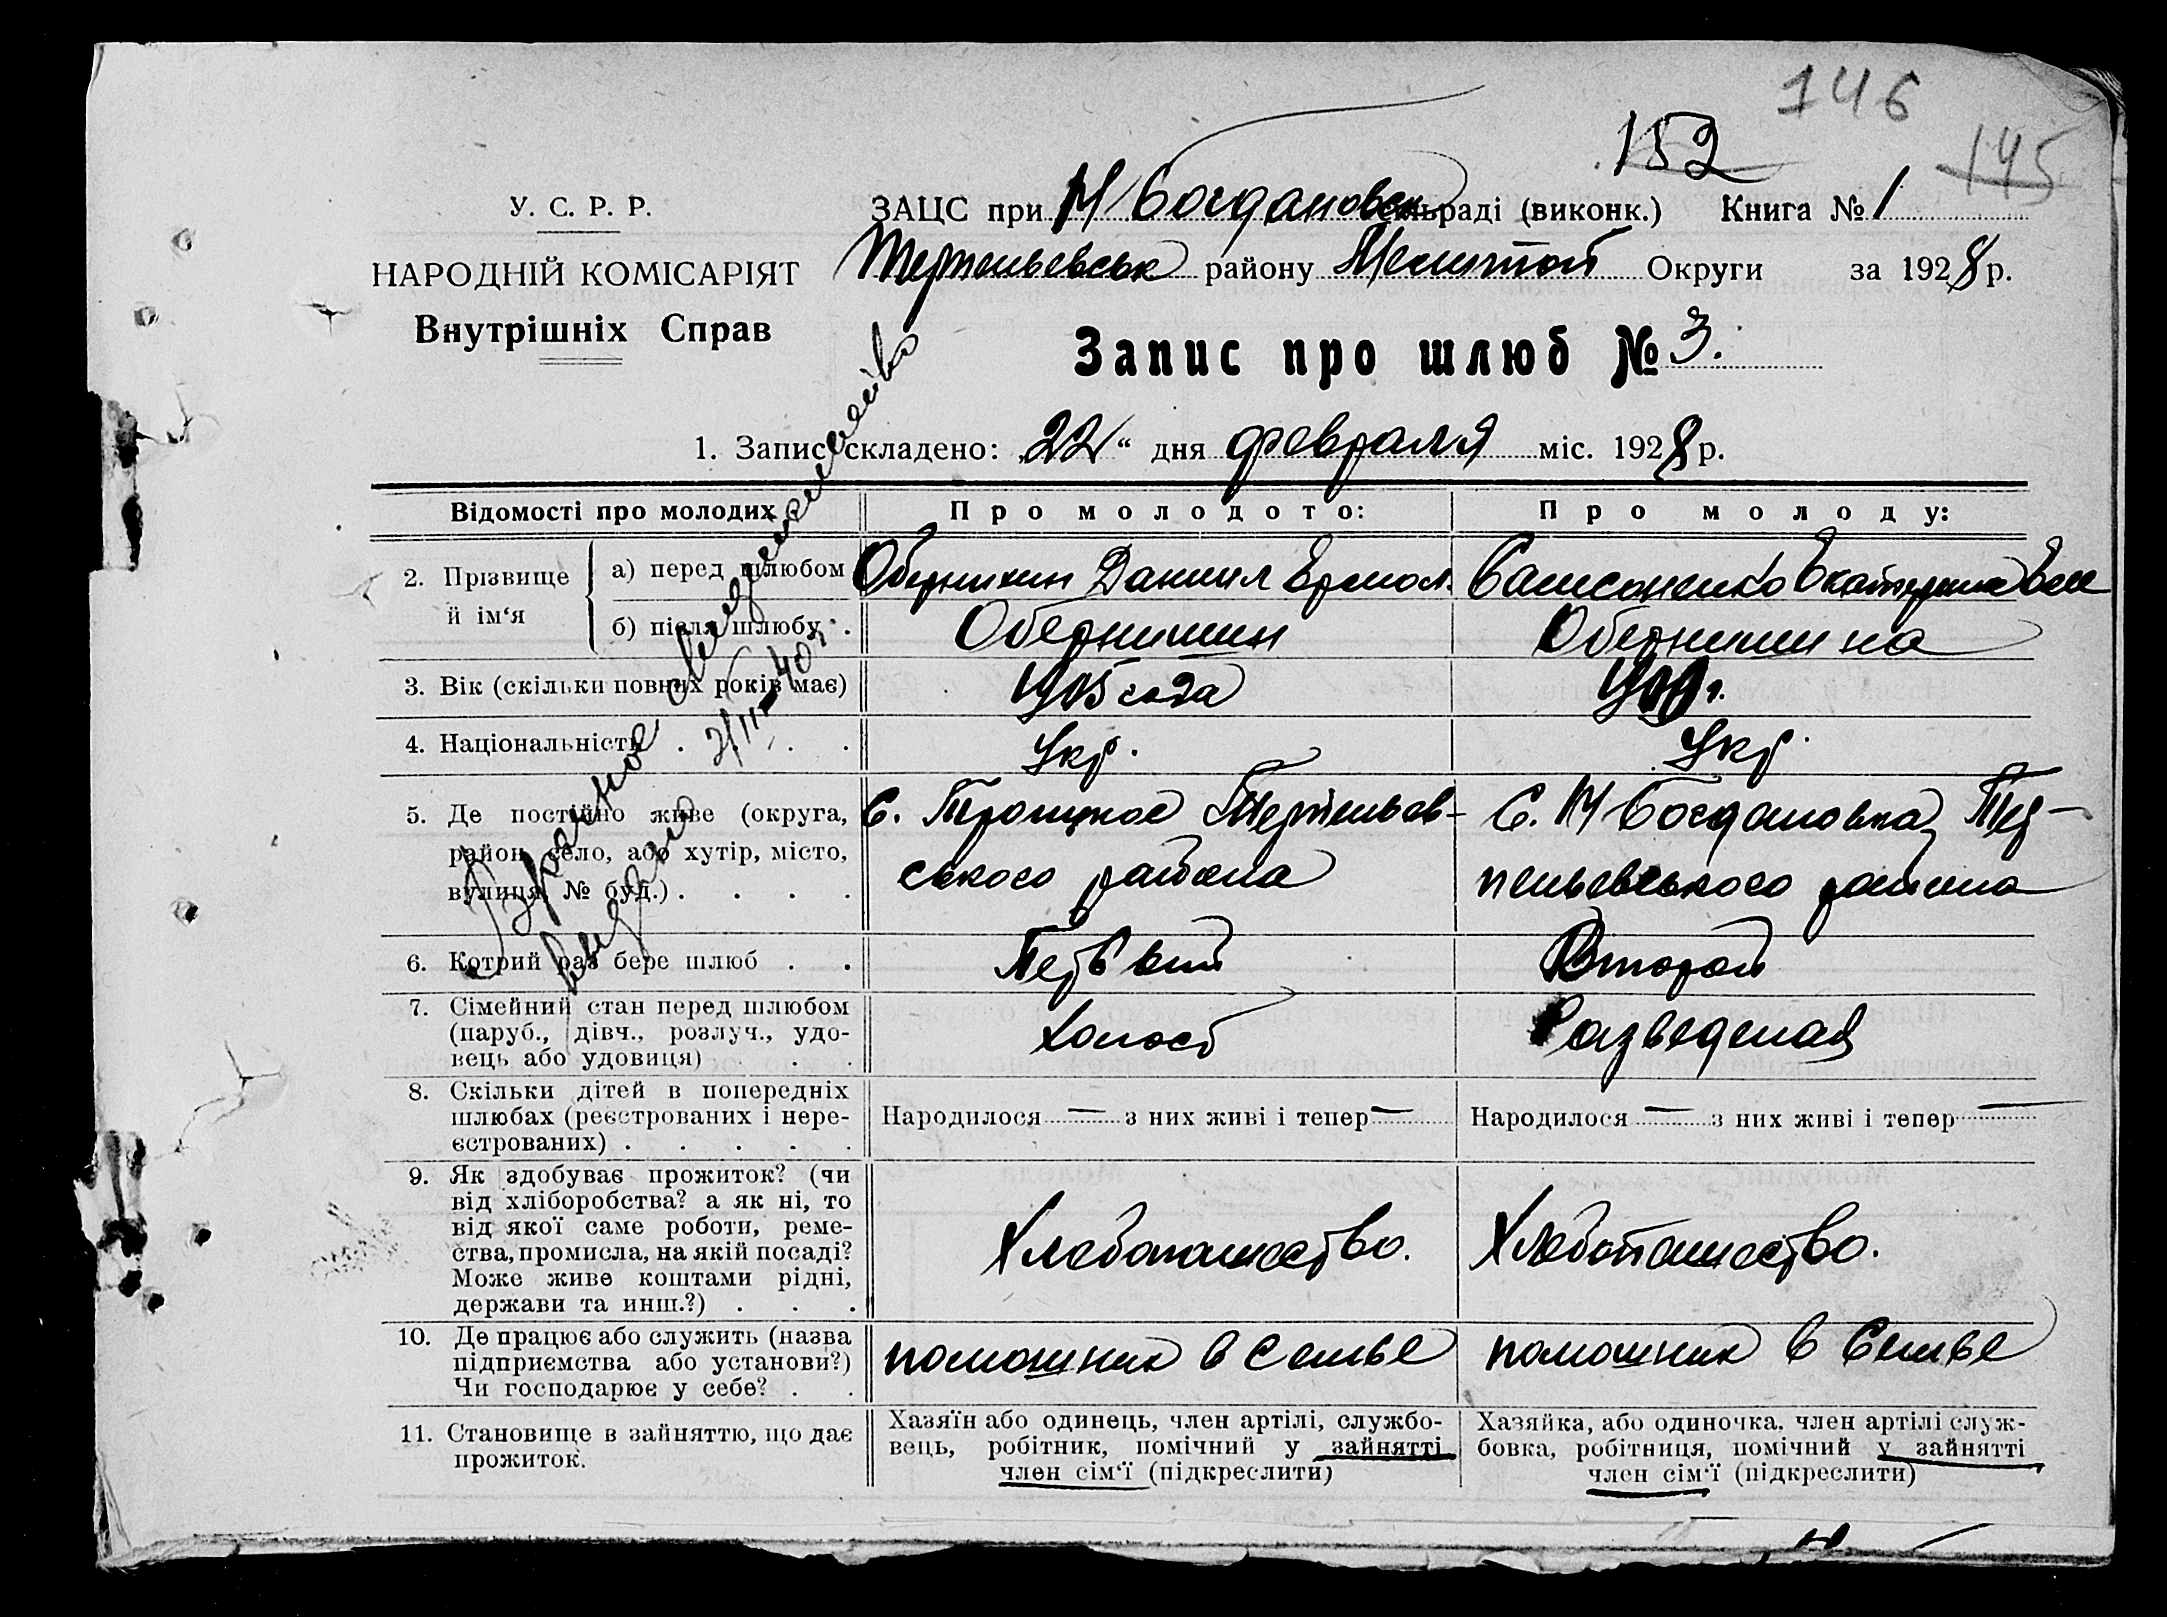 146
152
145
У. С. Р. Р.
НАРОДНІЙ КОМІСАРІЯТ
Внутрішніх Справ
ЗАЦС при М Богдановск сільраді (виконк.) Книга № 1
Терпеньевськ району Мелитоп Округи за 1928 р.
Запис про шлюб № 3.
1. Запис складено: „22“ дня февраля міс. 1928 р.
Відомості про молодих
Про молодого:
Про молоду:
2. Прізвище й ім‘я
а) перед шлюбом
Данил Ермол.
Екатерина
б) після шлюбу .
Обернихин
Обернихина
3. Вік (скільки повних років має)
1905 года
4. Національність . . . .
Укр.
Укр.
5. Де постійно живе (округа,
район, село, або хутір, місто,
вулиця № буд.) . . . .
С. Троицкое Терпеньев-
ського района
С. М Богдановка, Тер-
пеньевського района
6. Котрий раз бере шлюб . .
Первый
Второй
7. Сімейний стан перед шлюбом
(паруб., дівч., розлуч., удо-
вець або удовиця) . . .
Холост
Разведеная
8. Скільки дітей в попередніх
шлюбах (реєстрованих і нере-
єстрованих) . . . . .
Народилося — з них живі і тепер —
Народилося — з них живі і тепер —
9. Як здобуває прожиток? (чи
від хліборобства? а як ні, то
від якої саме роботи, реме-
ства, промисла, на якій посаді?
Може живе коштами рідні,
держави та инш.?) . . .
Хлебопашество.
Хлебопашество.
10. Де працює або служить (назва
підприємства або установи?)
Чи господарює у себе? . .
помошник в семье
помошник в семье
11. Становище в зайняттю, що дає
прожиток.
Хазяїн або одинець, член артілі, службо-
вець, робітник, помічний у зайнятті
член сім‘ї (підкреслити)
Хазяйка, або одиночка, член артілі служ-
бовка, робітниця, помічний у зайнятті
член сім‘ї (підкреслити)
Брачное свидетельство
выдано